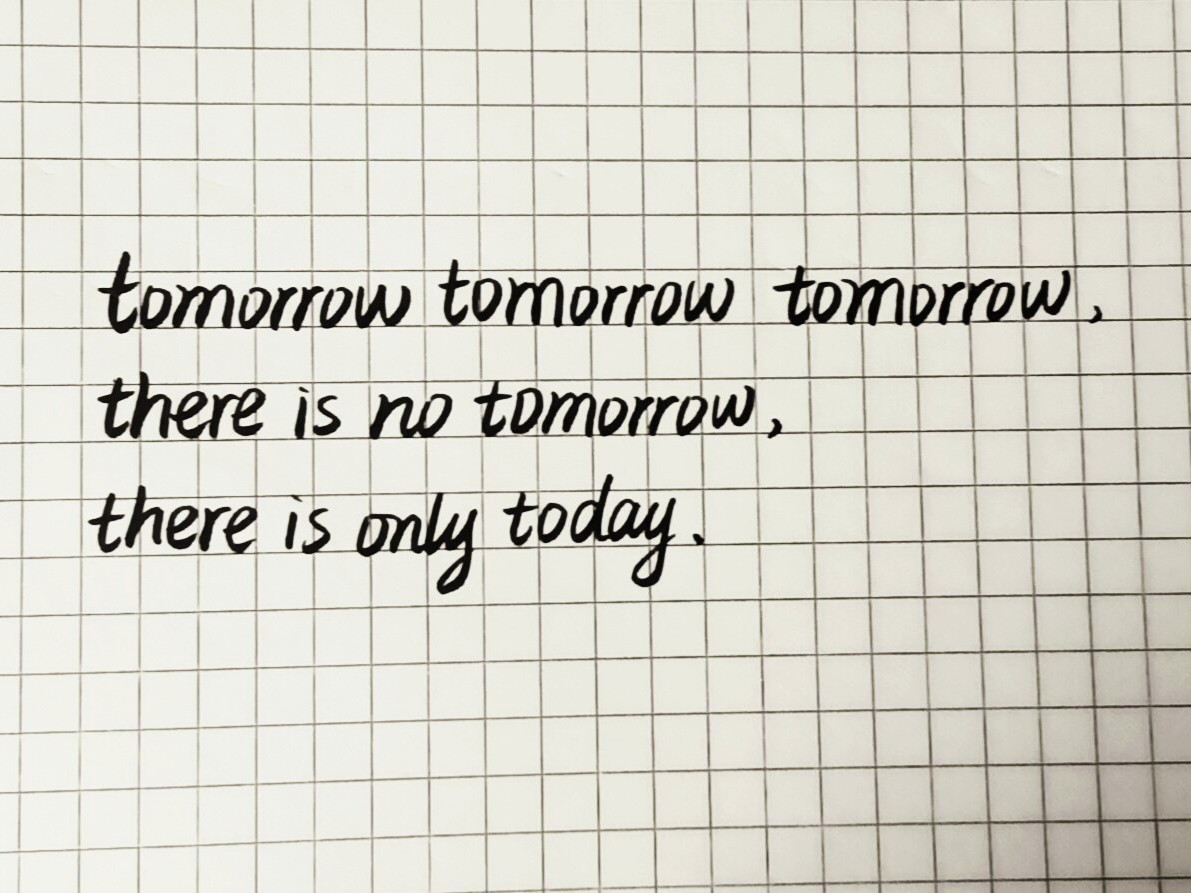 tomorrow tomorrow tomorrow,
there is no tomorrow,
there is only today.